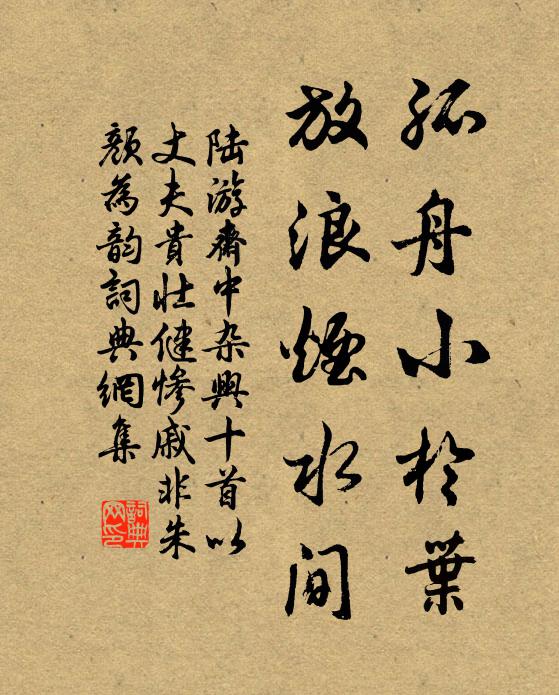 孤舟小於葉
放浪煙水间
陆游斋中杂興十首以
丈夫貴壮健惨戚非朱
颜為韵詞典網集
詞典
网印